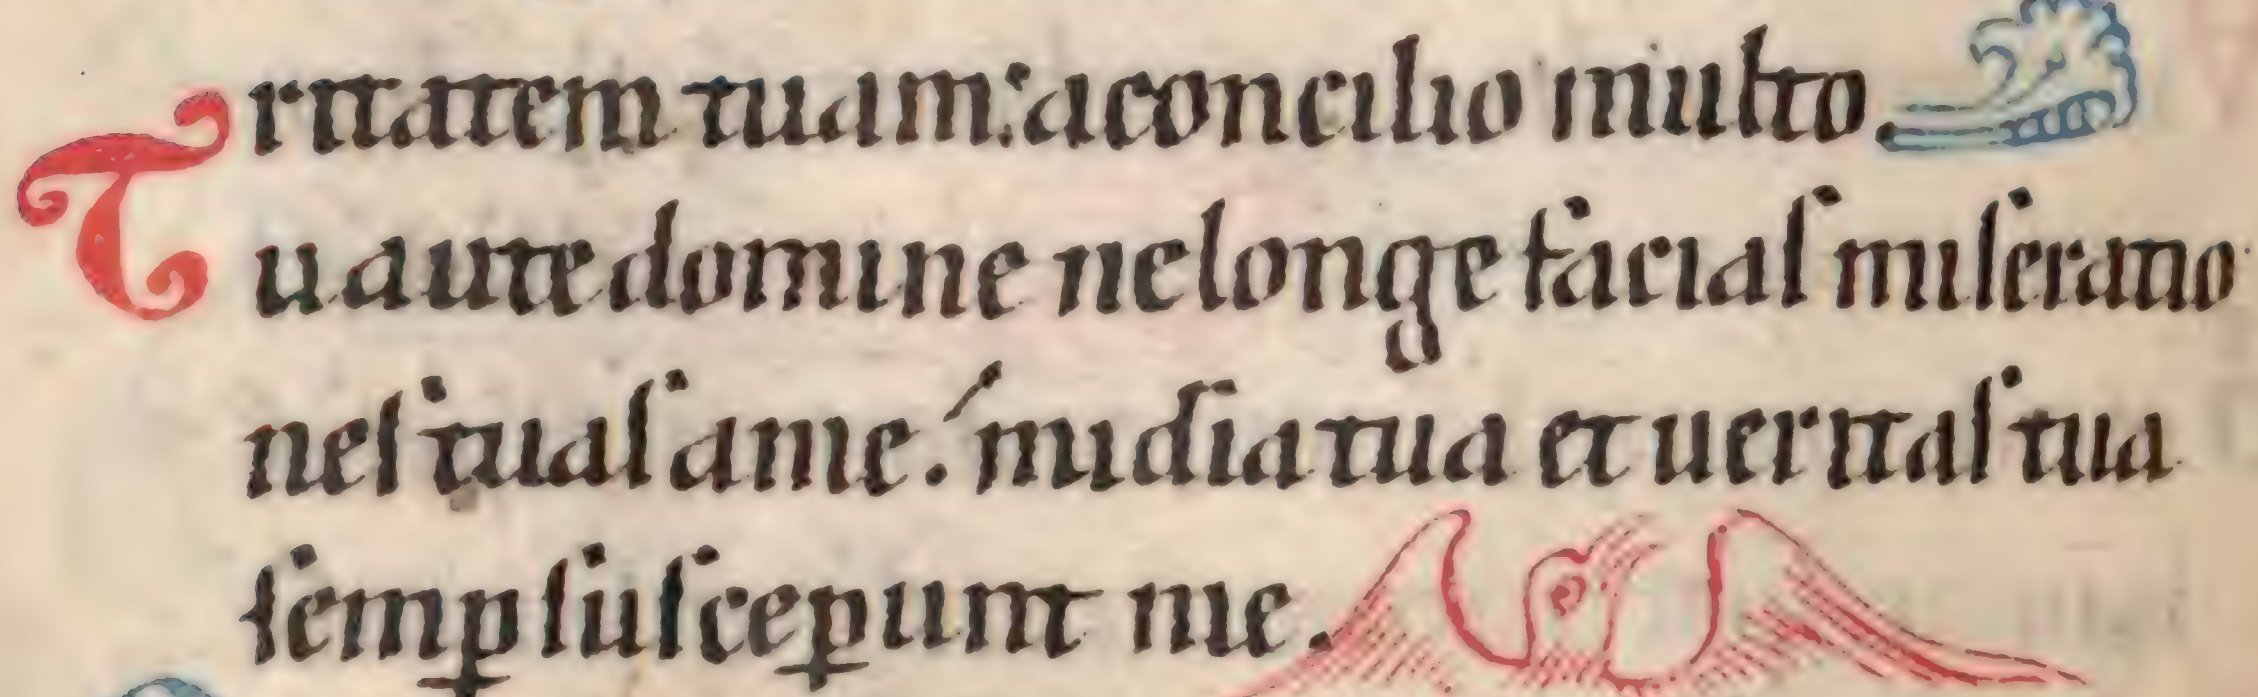 ritatem tuam: a concilio multo.
Tu aute domine ne longe facias miseratio
nes tuas a me. midia tua et ueritas tua
semp̲ suscep̲unt me.